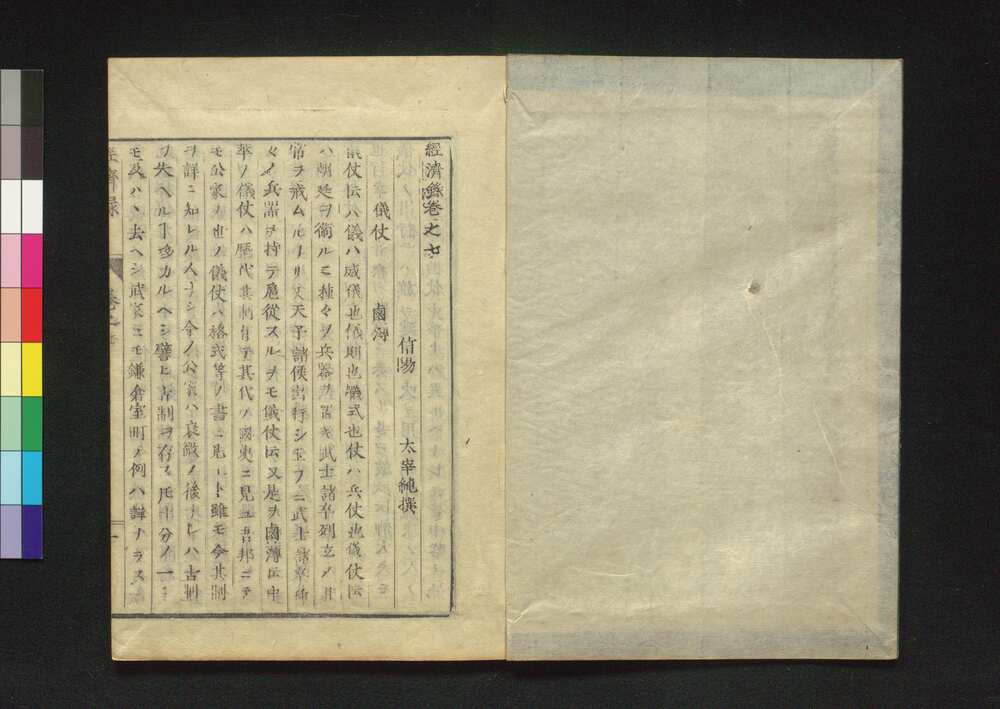 經濟錄卷之七
信陽　太宰純撰
儀仗　鹵簿
儀仗云ハ儀ハ威儀也儀則也儀式也仗ハ兵仗也儀仗云
ハ朝廷ヲ衛ルニ種々ノ兵器ヲ置キ武士諸卒列立ノ其
常ヲ戒ムルナリ又天子諸侯出行シ玉フニ武士諸卒種
々ノ兵器ヲ持テ扈從スルヲモ儀仗云又是ヲ鹵簿云中
華ノ儀仗ハ歷代其制有テ其代ノ國史ニ見ユ吾邦ニテ
モ公家ノ世ノ儀仗ハ格式等ノ書ニ見ユト雖モ今其制
ヲ詳ニ知レル人ナシ今ノ公家ハ衰微ノ後ナレハ古制
ヲ失ヘル丁多カルヘシ譬ヒ古制ヲ存ス 十分ノ一ニ
モ及ハ 去ヘシ武家ニモ鎌倉室町ノ例ハ詳ナラス
經濟錄　卷之七　一